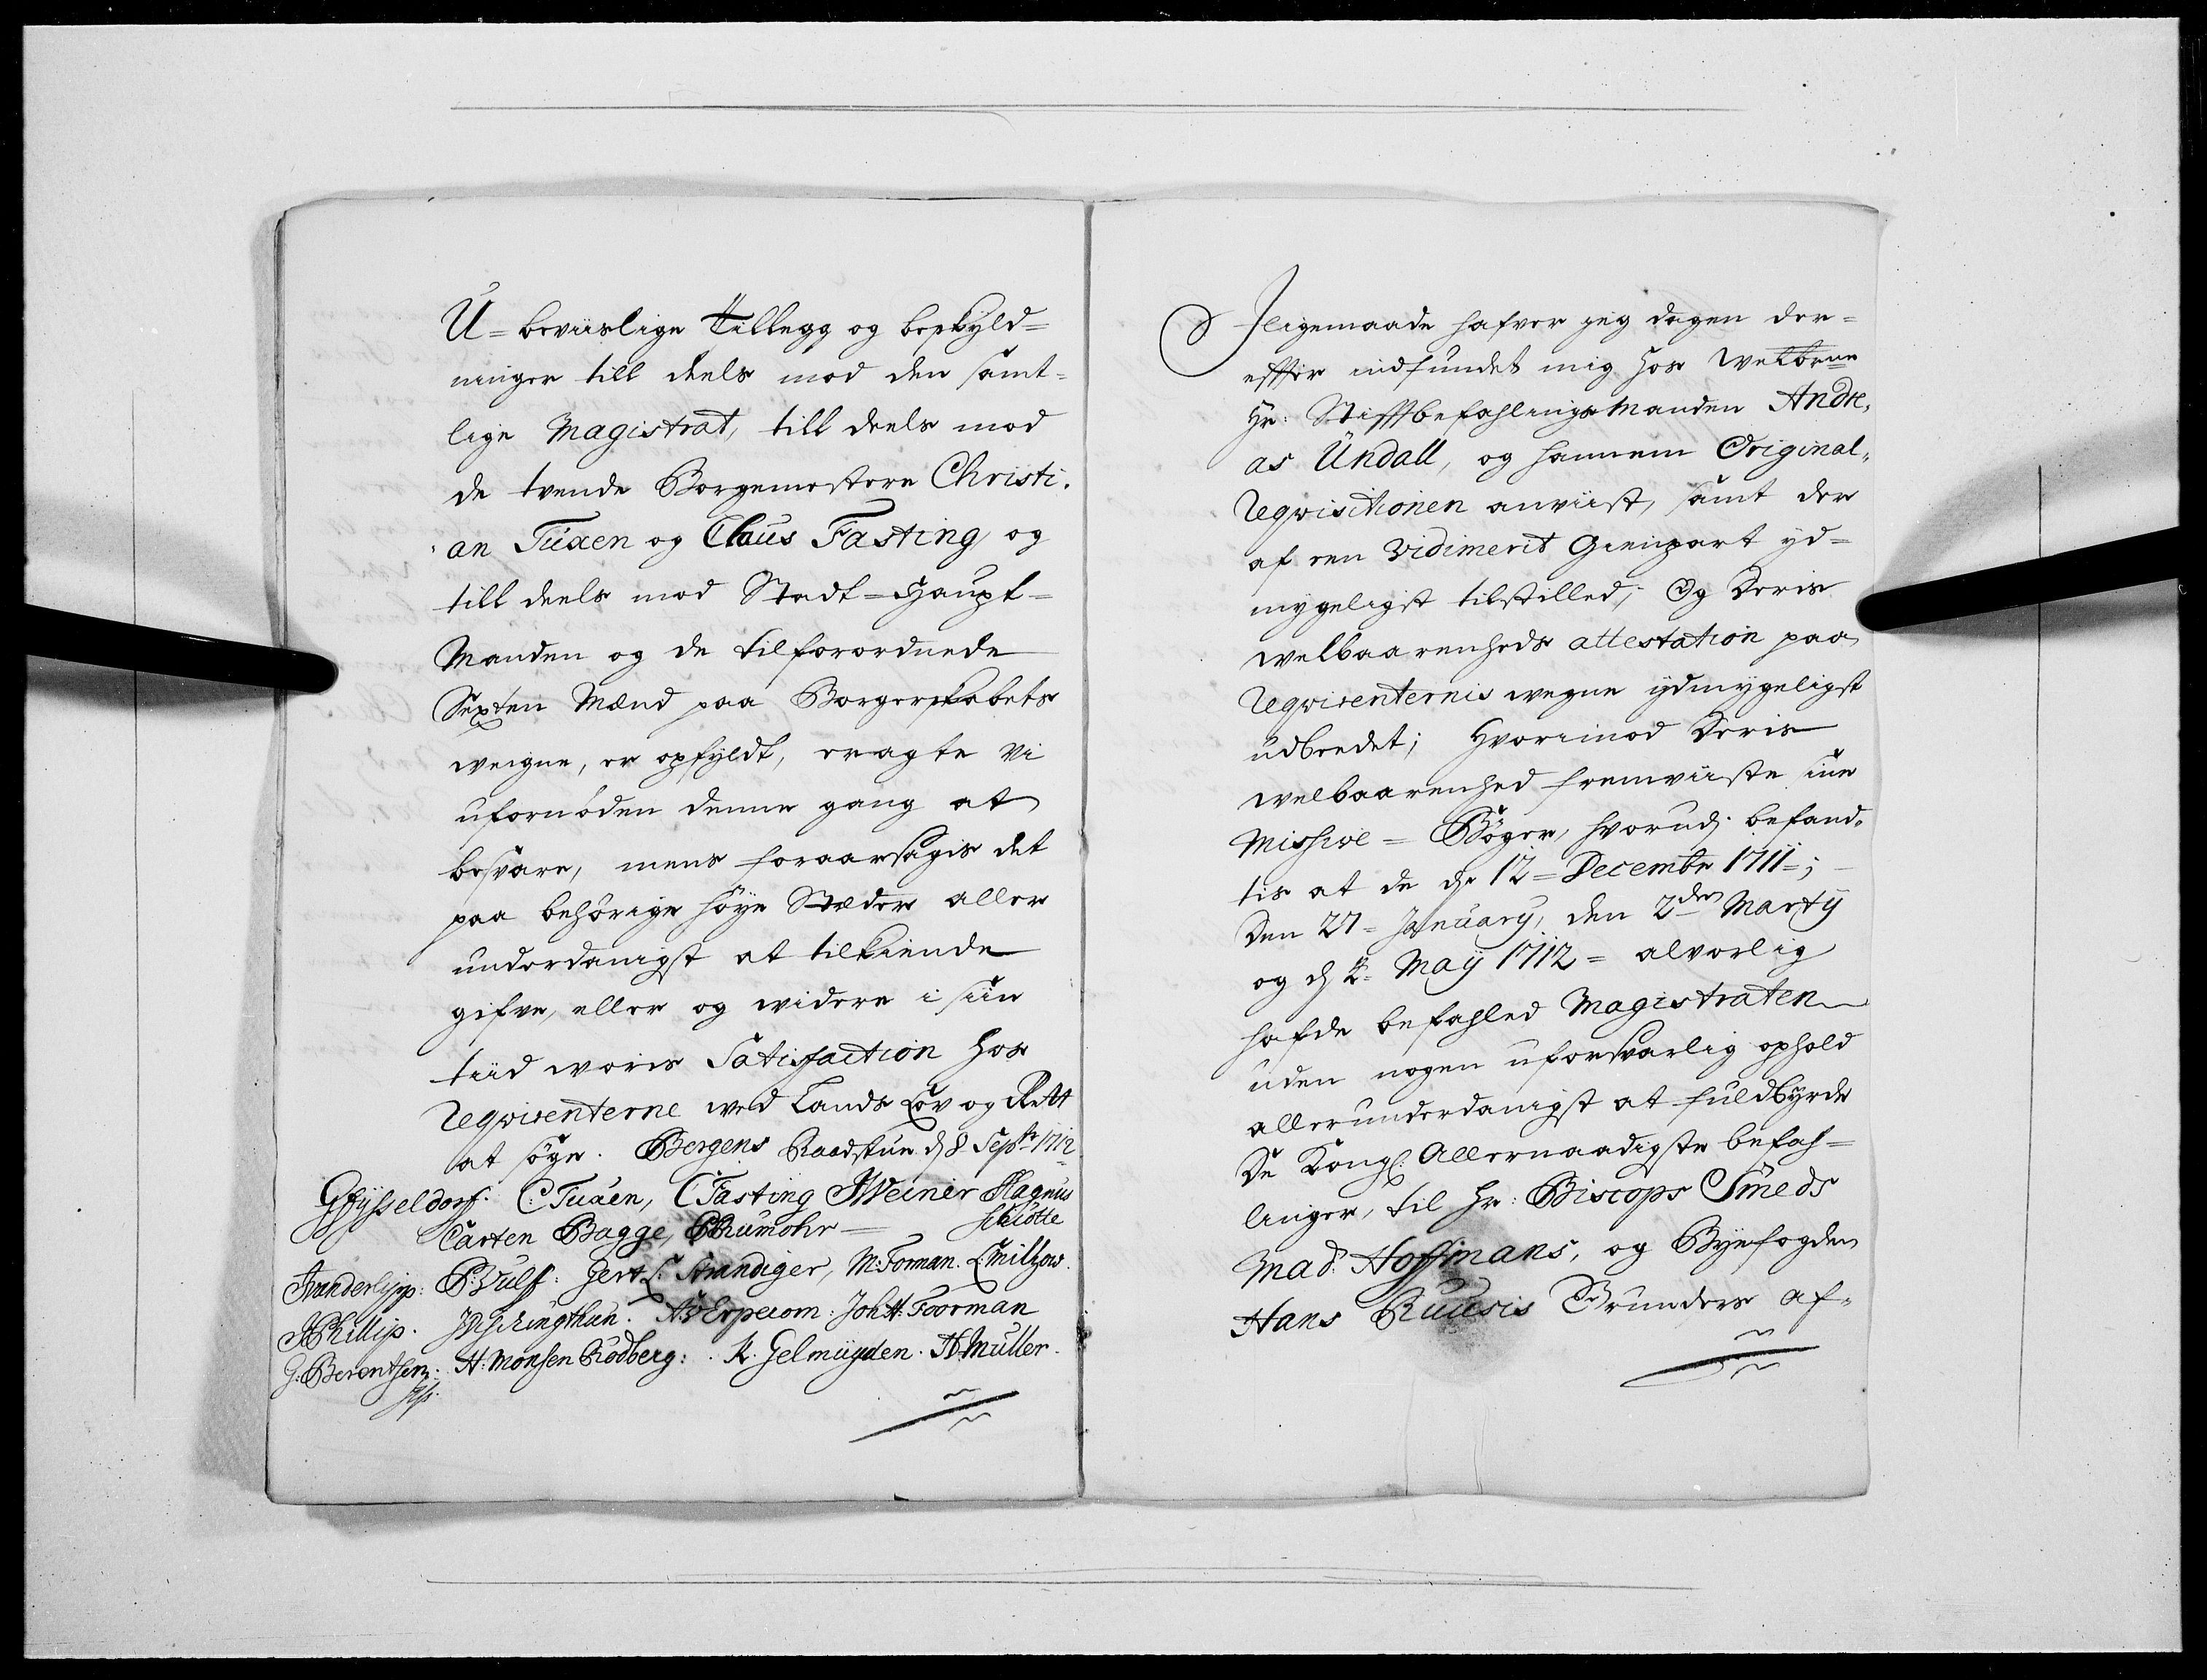 U-beviislige Tillegg og beskyld-
ninger till deels mod den samt-
lige Magistrat, till deels mod
de tvende Borgemestere Christi-
an Tuxen og Claus Fasting og
till deels mod Stadt-Haupt-
Manden og de tilforordnede
Sexten Mænd paa Borgerskabets
veigne, er opfyldt, eragte vi
ufornöden denne gang at
besvare, mens foraarsagis det
paa behörige höye Stæder aller
underdanigst at tilkiende
gifve, eller og widere i siin
tiid voris Satisfaction hos
Reqvirenterne ved Lands Lov og Rett
at söge. Bergens Raadstue d 8 Septr 1712
C Tuxen, C Fasting J Weiner Hagnus
Carten Bagge, P Rumohr Schiötte
P: Bulff: Gert L: Strandiger, M: Forman. L Miltzow.
J Phillip. A v Erpecom: Joh H: Foorman
G. Berentsen: H: Monsen Rödberg: K. Gelmuyden. H Müller.
J ligemaade hafver jeg dagen der-
effter indfundet mig hos Welborne
Hr: StifftbefahlingsManden Andre,
as Undall, og hannem Original,
Reqvisitionen anviist, samt der
af een Vidimerit Gienpart yd-
mygeligst tilstilled; Og Deris
welbaarenheds attestation paa
Reqvirenternis wegne ydmygeligst
udbeedet; Hvorimod Deris
welbaarenhed fremviiste sine
Missive-Böger, hvorudj befand-
tis at de dn 12 Decembr 1711;
Den 27 January, den 2den Martij
og d 2 Maij 1712 alvorlig
hafde befahled Magistraten
uden nogen uforsvarlig ophold
allerunderdanigst at fuldbyrde
De Kongl: Allernaadigste befah-
linger, til Hr: Biscops Smeds
Mad: Hoffmans, og Byefogden
Hans Ruusis Grunders af-